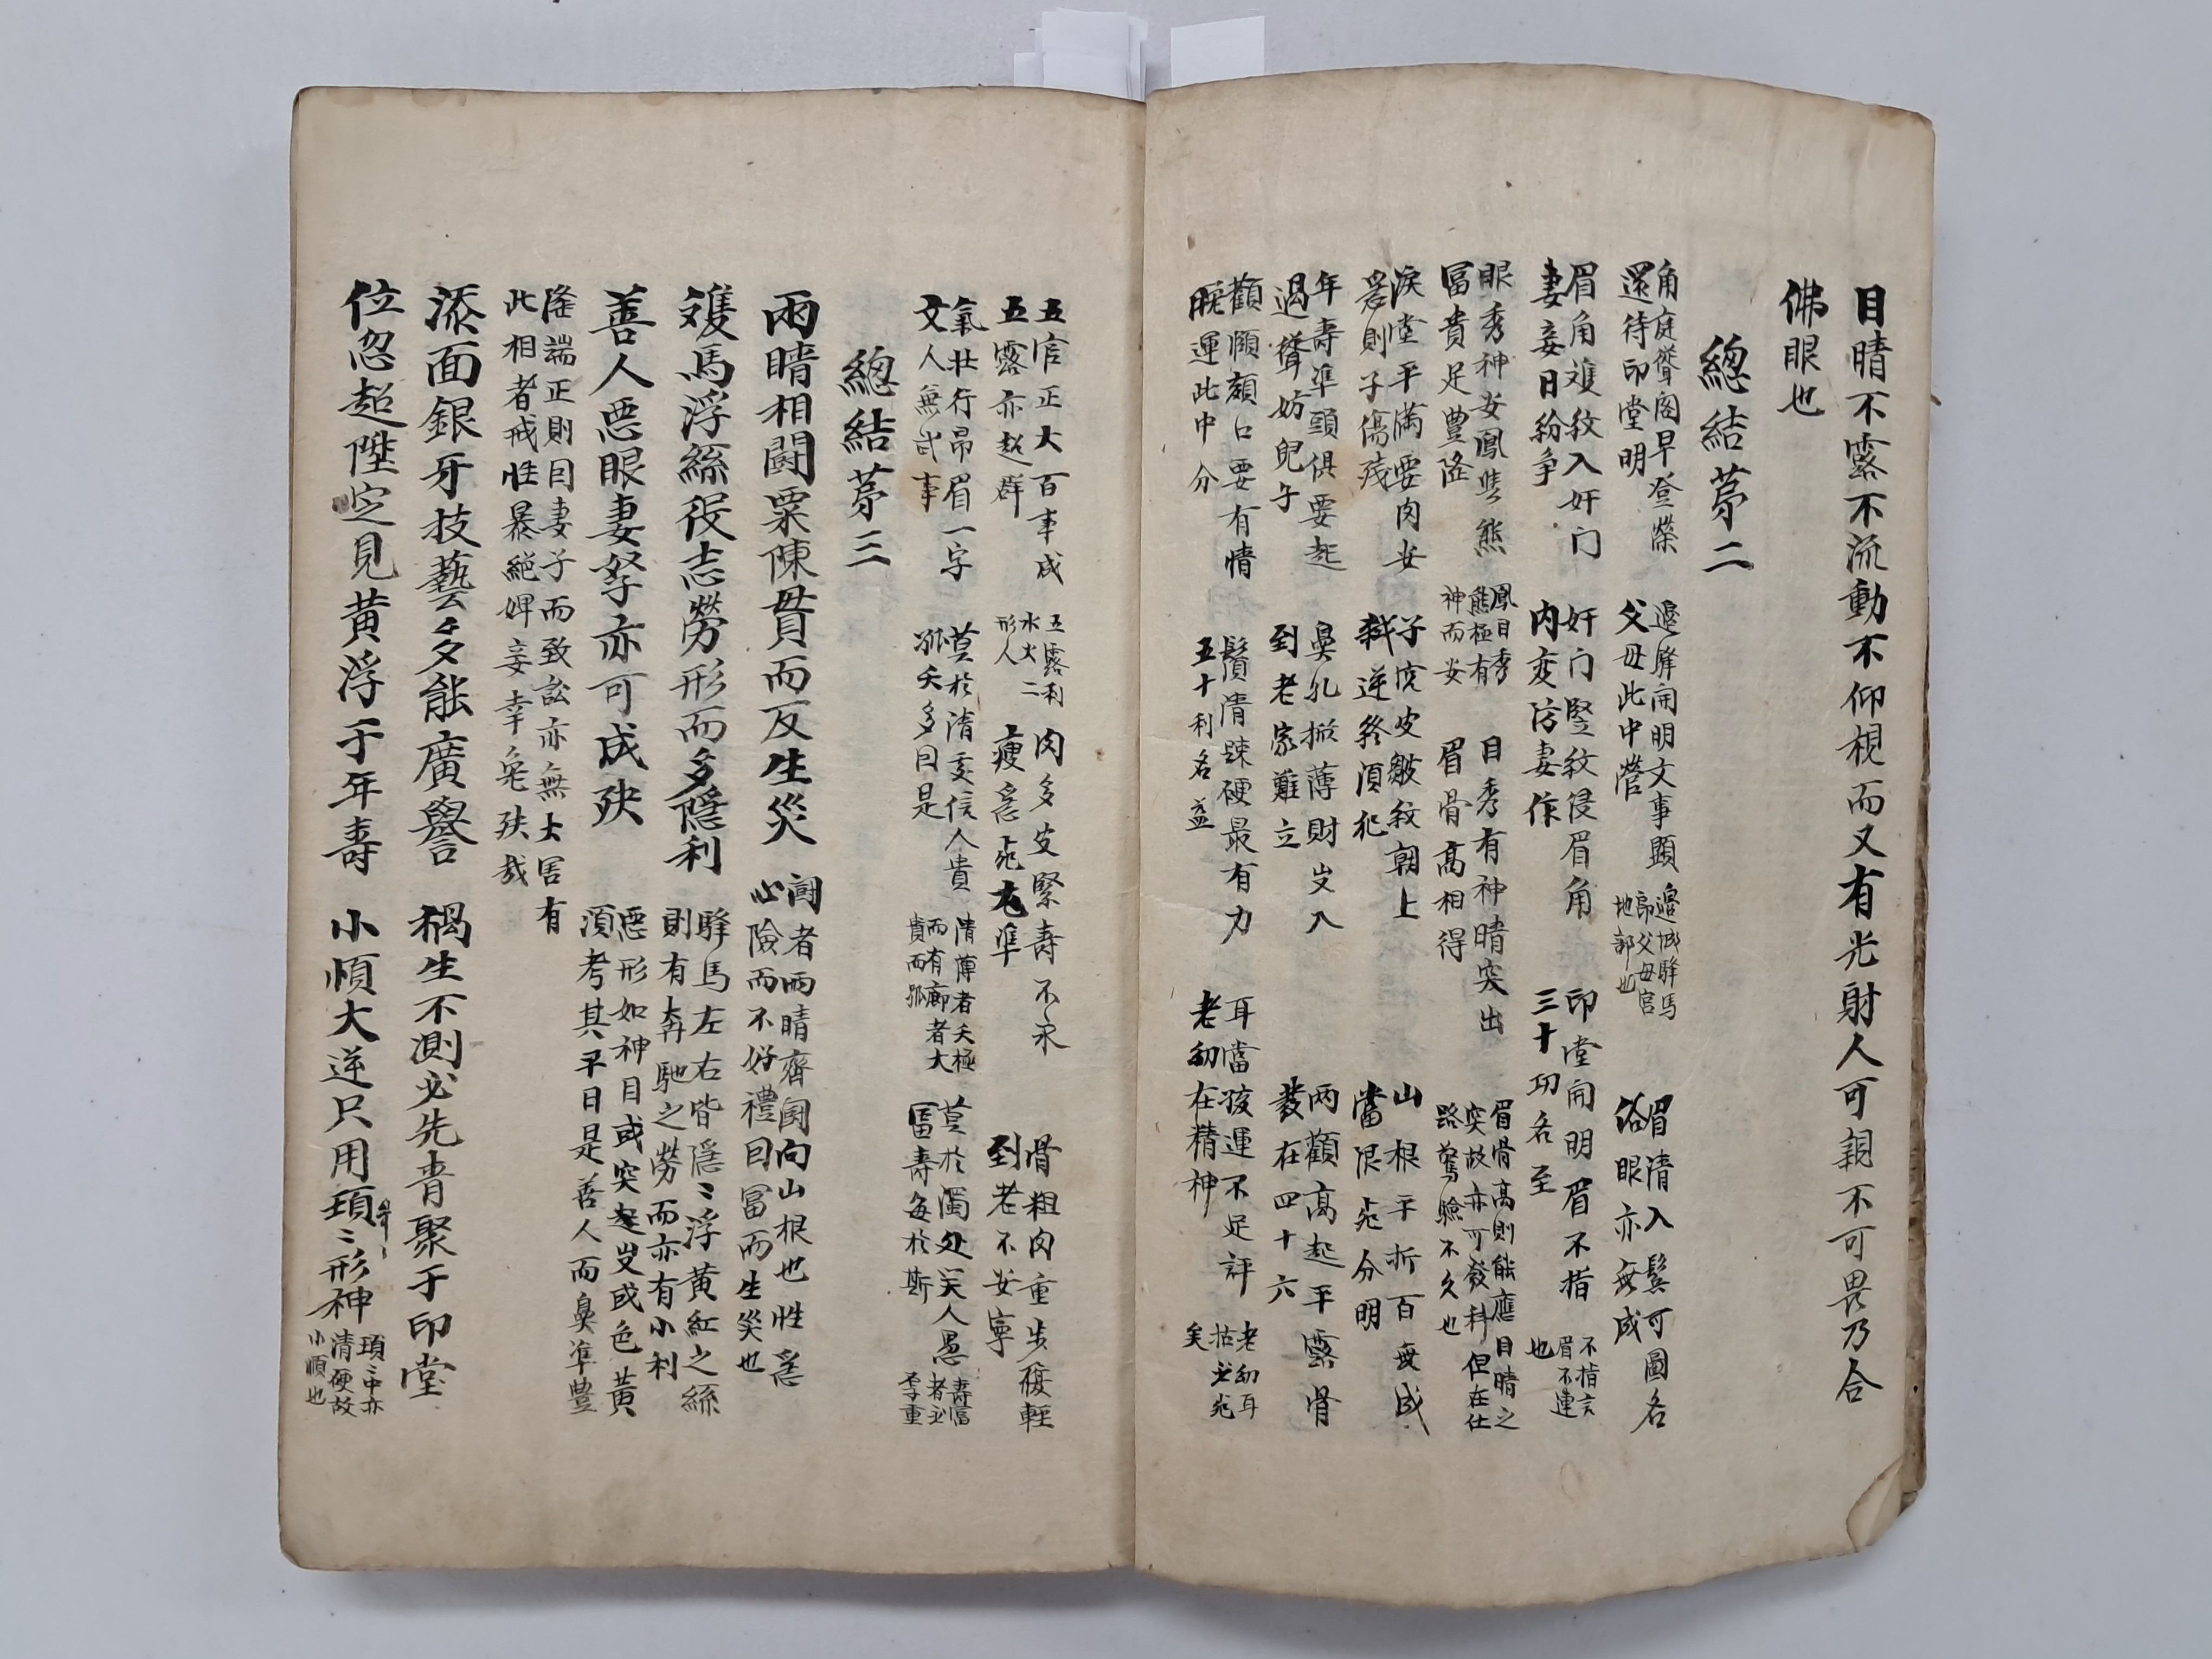 目睛不露不流動不仰視而又有光射人可親不可畏乃合
佛眼也
總結苐二
角庭聳闊早登榮
還待印堂明
邊驛開明文事顯
父母此中營
邊城驛馬
部父母宮
地部也
眉清入鬂可圖名
俗眼亦無成
眉角雙紋入奸门
妻妾日紛争
奸门竪紋侵眉角
内変防妻作
印堂開明眉不指
三十功名至
不指言
眉不連
也
眼秀神安鳳與熊
冨貴足豊隆
鳳目秀
熊極有
神而安
目秀有神睛突出
眉骨高相得
眉骨高則能應目睛之
突故亦可發科但在仕
路驚險不久也
淚堂平满要肉安
喪則子傷残
子宮皮皺紋朝上
弑逆終須犯
山根平折百無成
當限死分明
年壽凖頭俱要起
過聳妨兒子
鼻孔掀薄財出入
到老家難立
两顴高起平露骨
發在四十六
顴頤頦口要有情
晚運此中分
鬚清踈硬最有力
五十利名益
耳當孩運不足評
老初在精神
老初耳
枯必死
矣
五官正大百事成
五露亦超群
五露利
水火二
形人
肉多皮緊壽不永
瘦急死尤準
骨粗肉重步復輕
到老不安寧
氣壯行昂眉一字
文人無武事
莫於清處信人貴
孤夭多因是
清薄者夭極
而有廊者大
貴而孤
莫於濁处笑人愚
冨壽每於斯
壽冨
者必
李重
總結苐三
兩睛相鬪粟陳貫而反生災
鬪者两睛齊鬪向山根也性急
心險而不好禮因冨而生災也
雙馬浮絲役志勞形而多隱利
驛馬左右皆隱〻浮黄紅之絲
則有奔馳之勞而亦有小利
善人惡眼妻孥亦可成殃
惡形如神目或突起出或色黄
須考其平日是善人而鼻準豊
隆端正則因妻子而致訟亦無大害有
此相者戒性暴絕婢妾幸免殃哉
添面銀牙技藝多能廣譽
禍生不測必先青聚于印堂
位忽超陞定見黄浮于年壽
小順大逆只用項〻形神
項〻中亦
清硬故
小順也